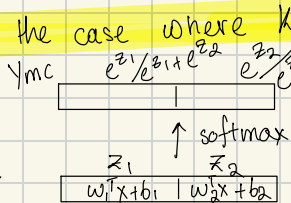 the case where K
Ymc e^{z_1}/e^{z_1}+e^{z_2} e^{z_2}/e
↑ softmax
z_1 z_2
w_1^T x+b_1 | w_2^T x+b_2